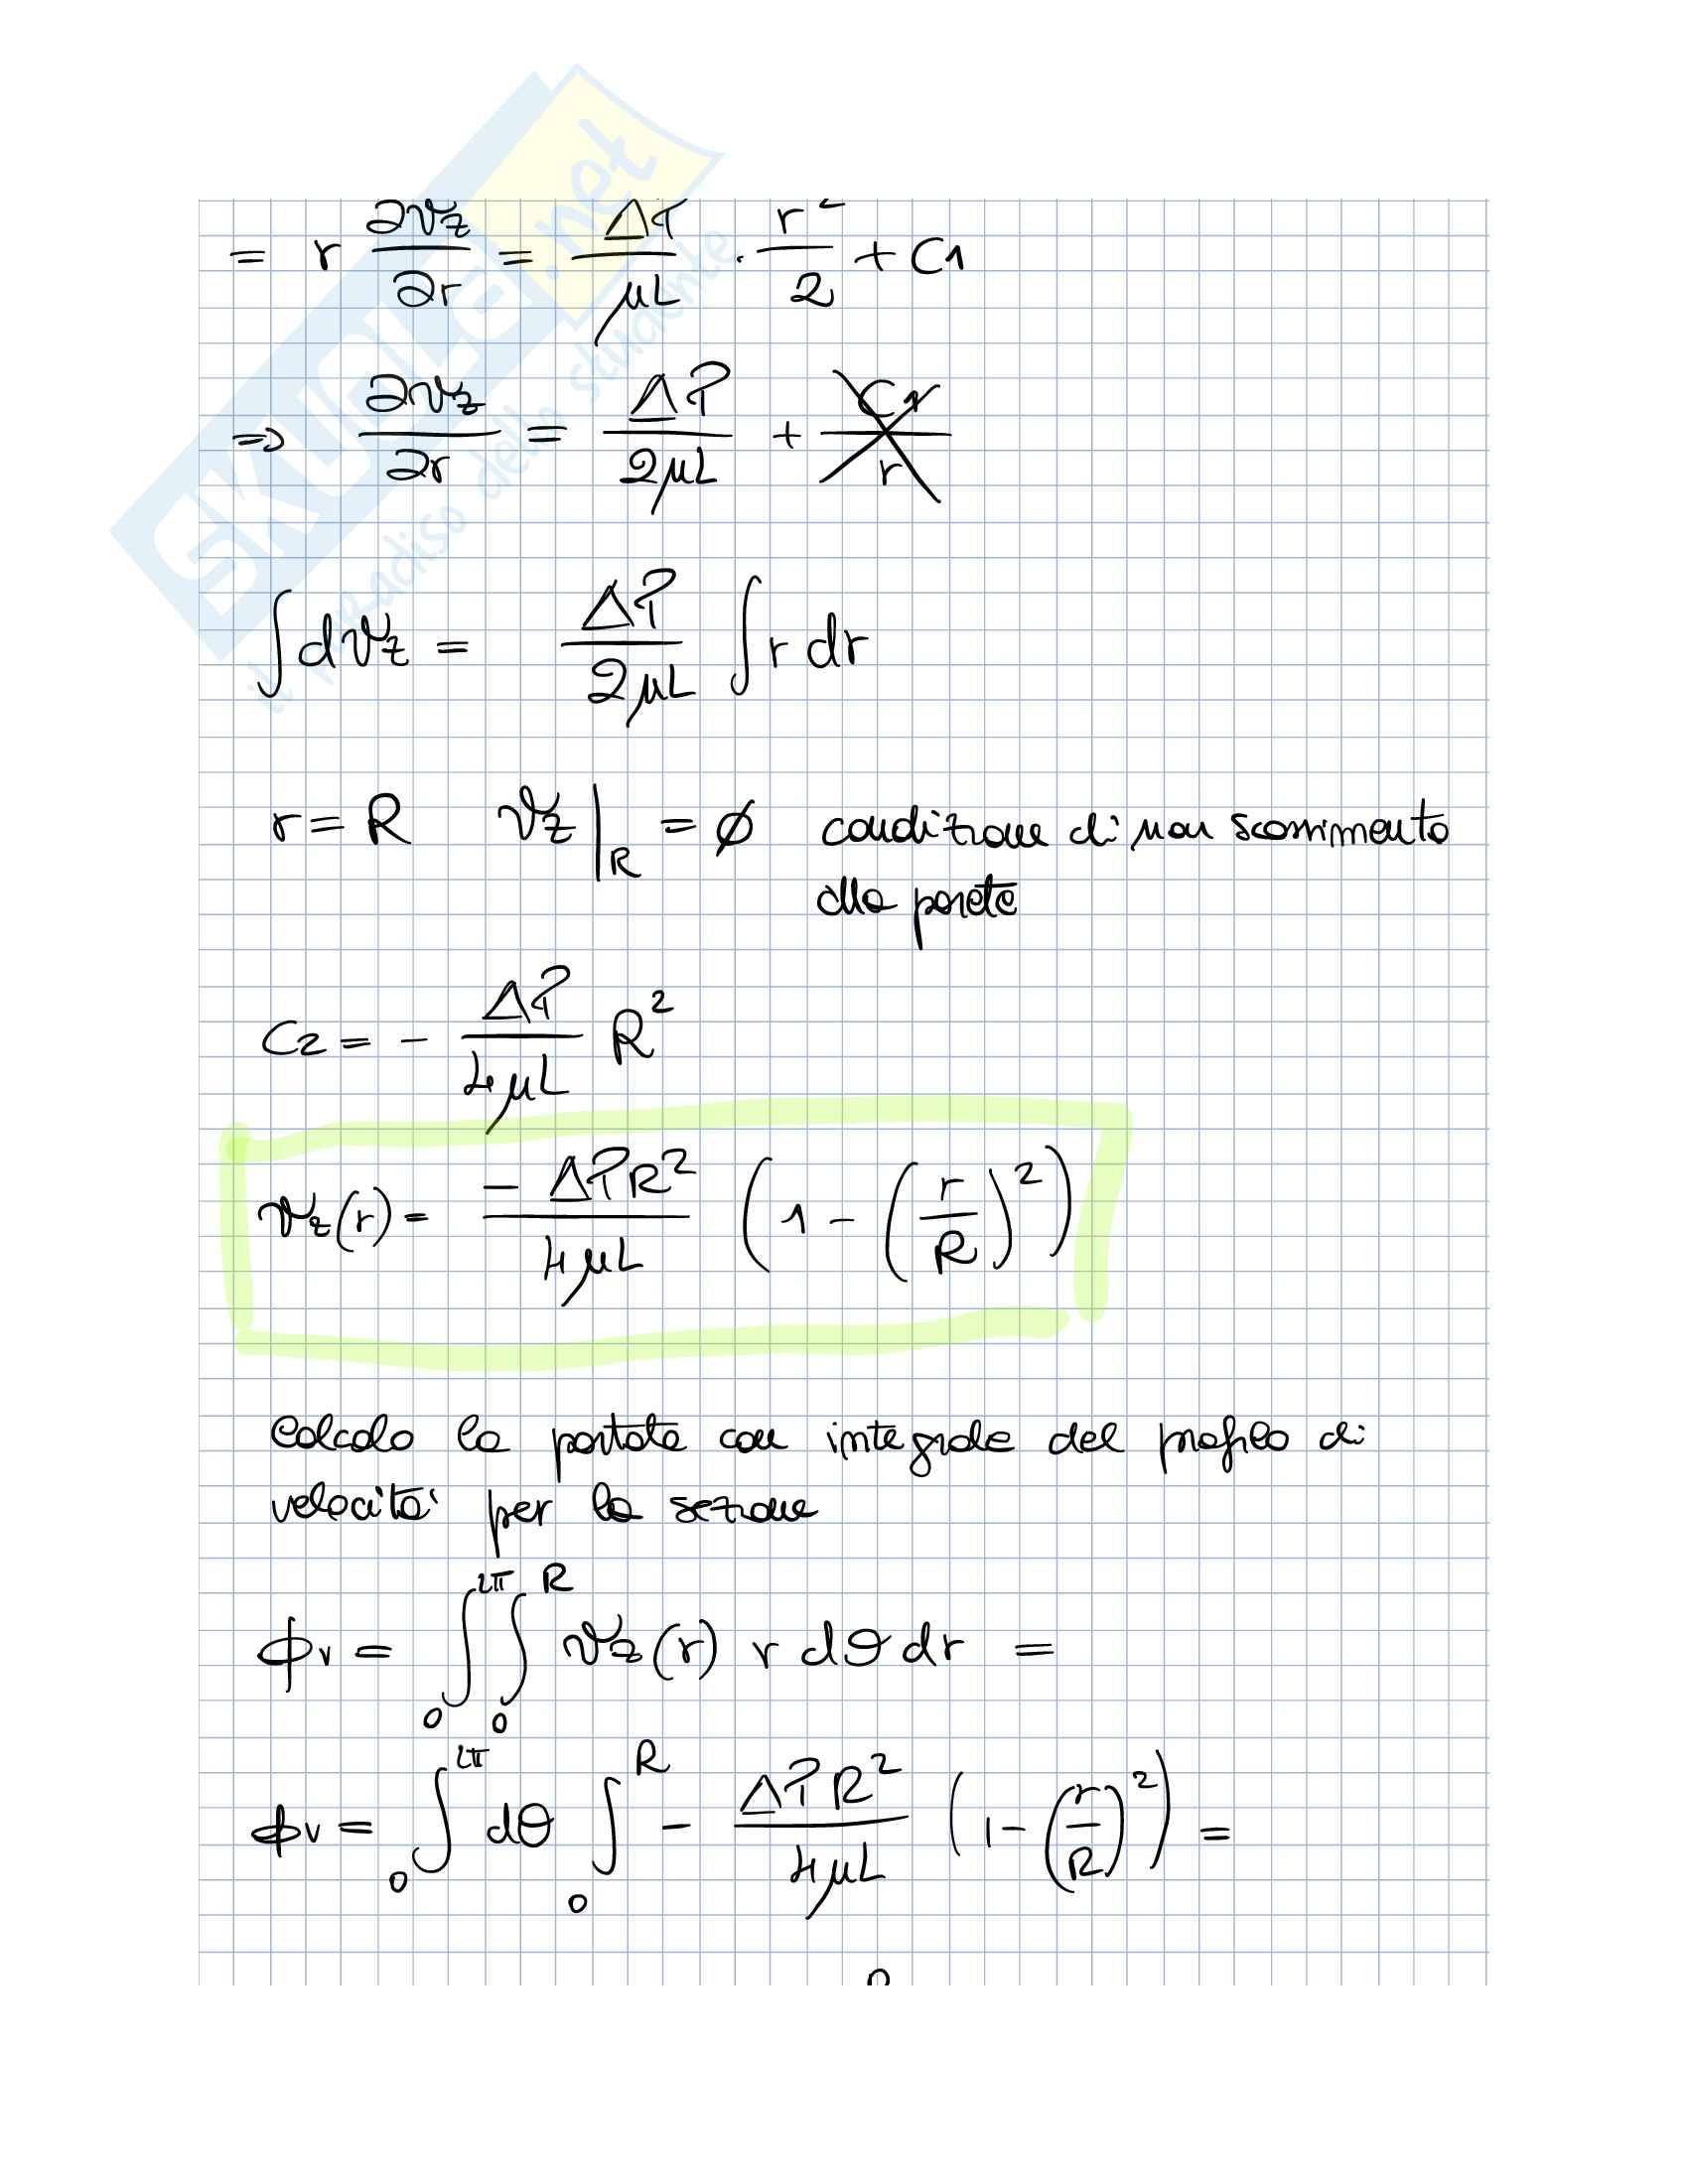 SKUOLA.net
il paradiso dello studente
= r ∂vz/∂r = ΔP/μL · r²/2 + C1
=> ∂vz/∂r = ΔP/2μL + C1/r
∫dvz = ΔP/2μL ∫r dr
r = R vz|R = ∅ condizione di non scorrimento
alla parete
C2 = - ΔP/4μL R²
vz(r) = -ΔPR²/4μL (1 - (r/R)²)
Calcolo la portata con integrale del profilo di
velocità per la sezione
ϕv = ∫₀^2π ∫₀^R vz(r) r dθ dr =
ϕv = ∫₀^2π dθ ∫₀^R - ΔPR²/4μL (1 - (r/R)²) =